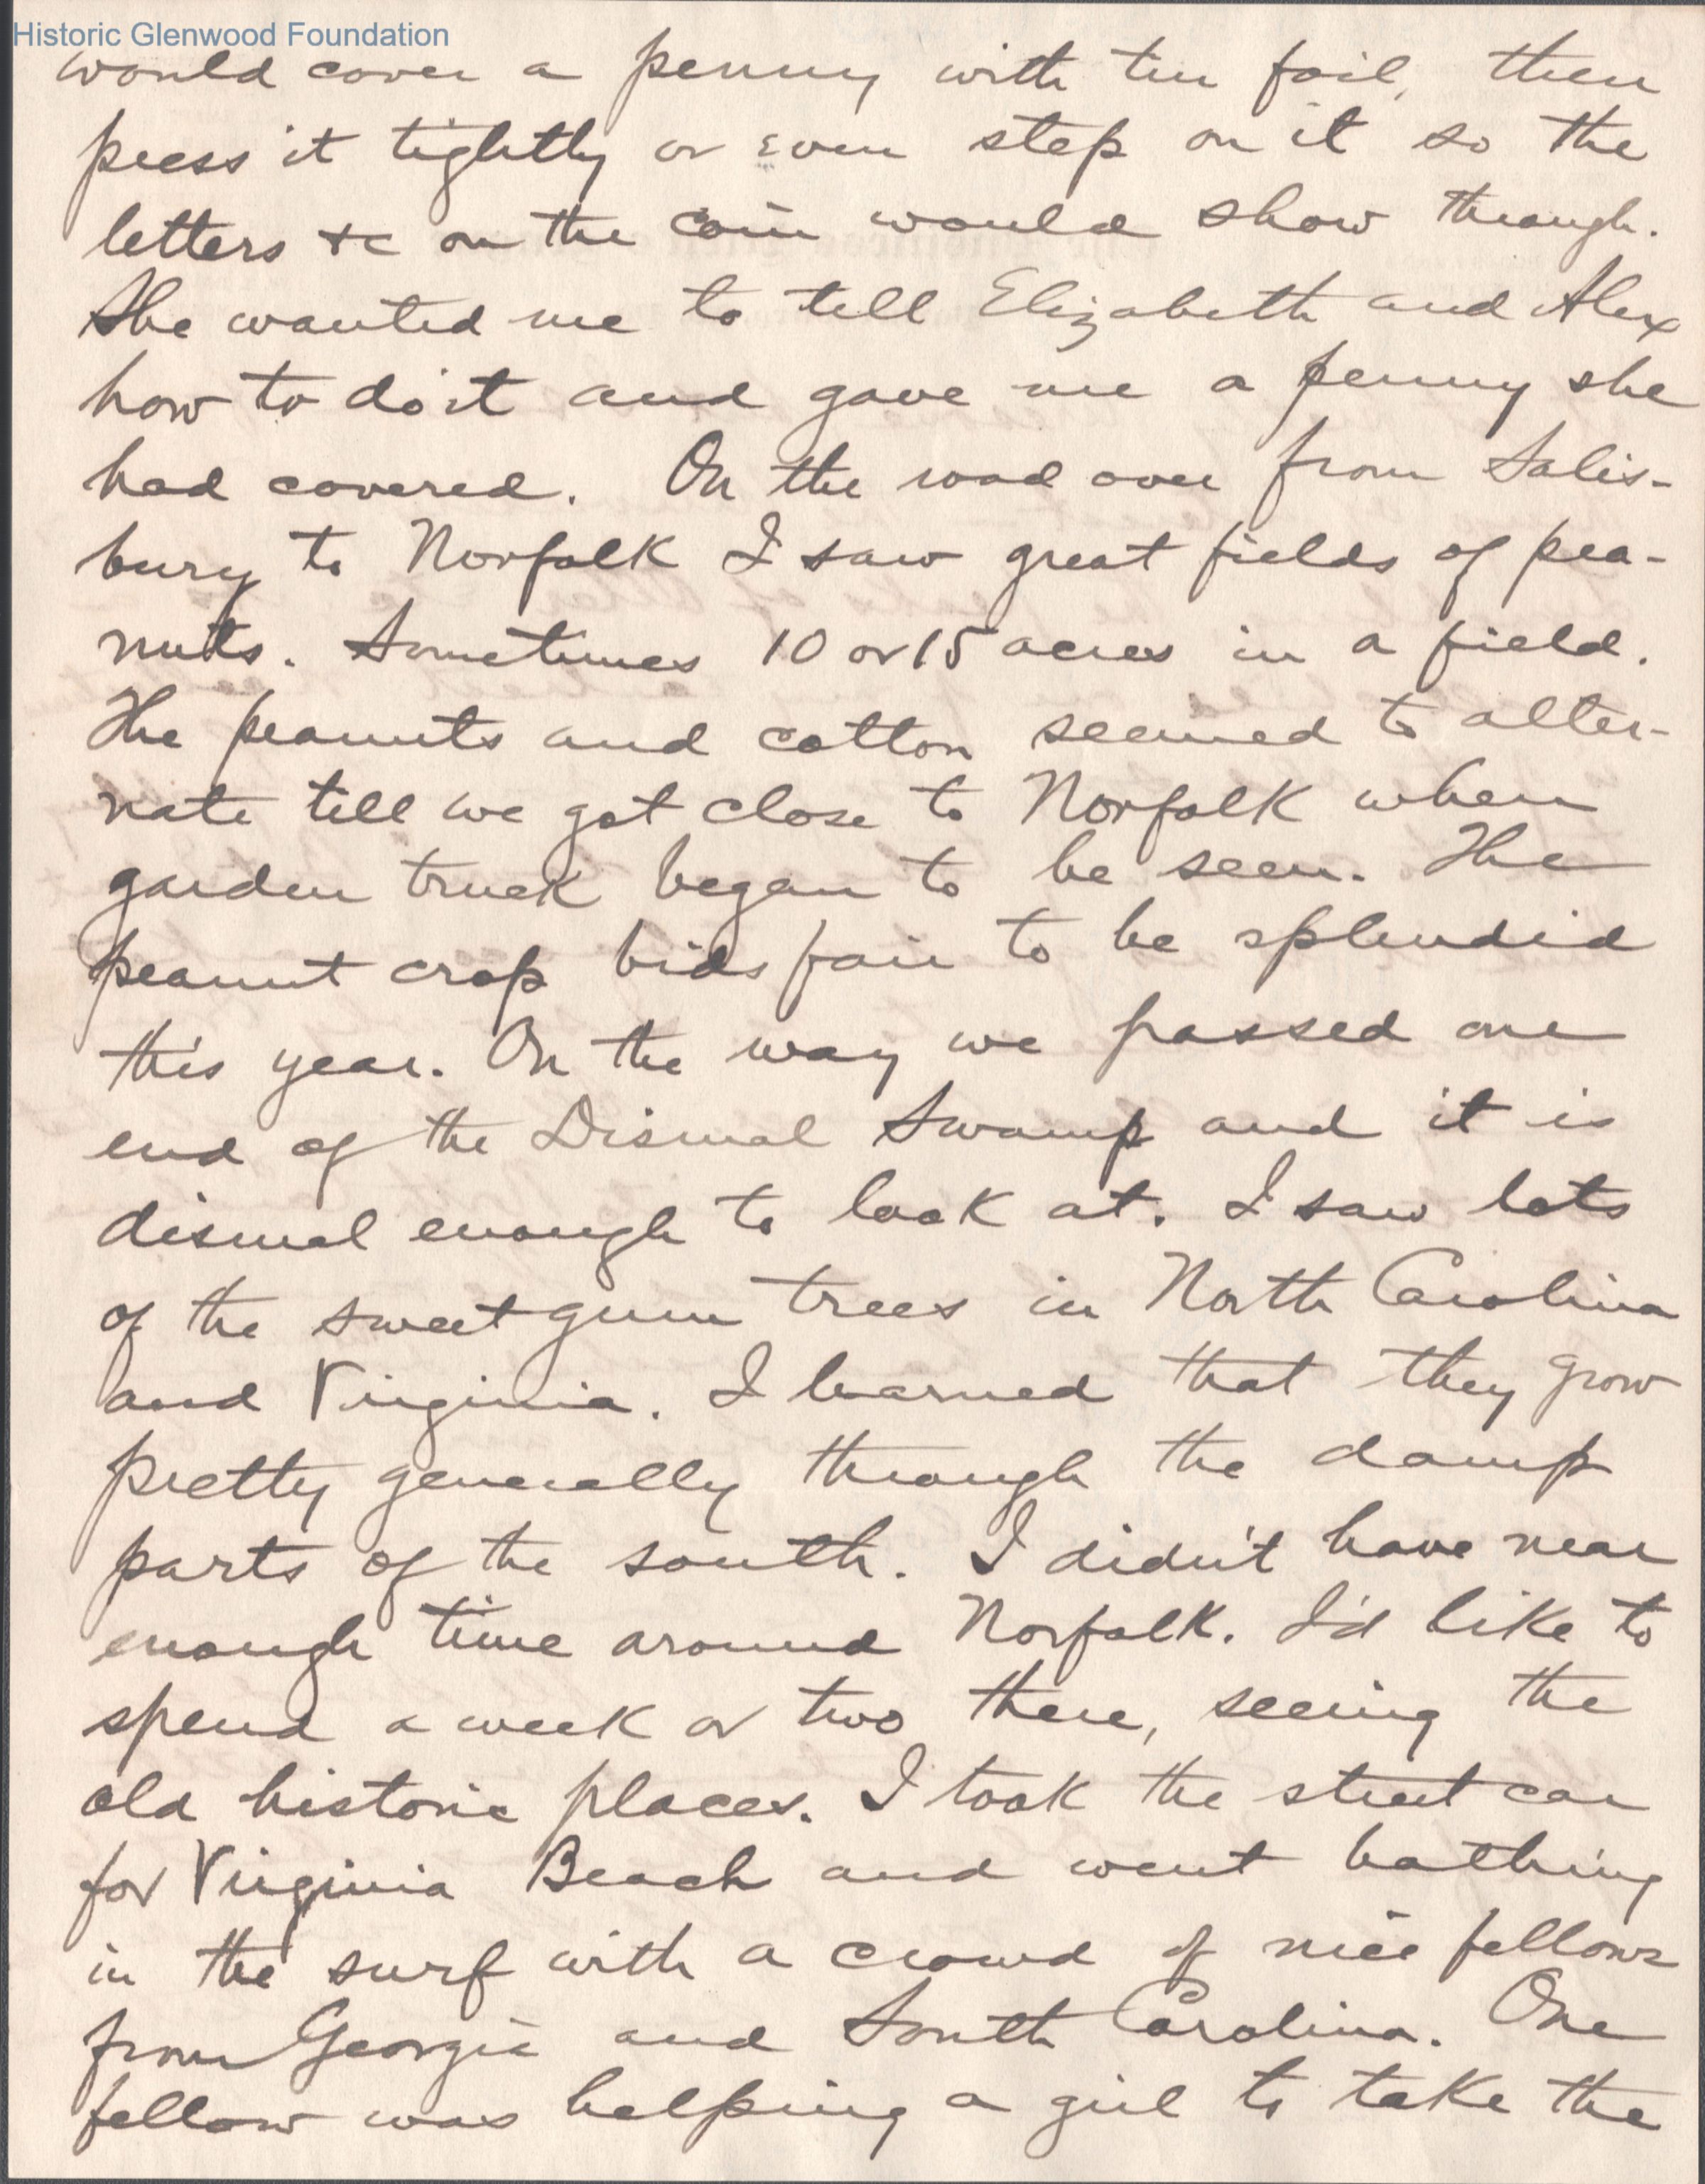 Historic Glenwood Foundation
would cover a penny with tin foil, then
press it tightly or even step on it so the
letters &c on the coin would show through.
She wanted me to tell Elizabeth and Alex
how to do it and gave me a penny she
had covered. On the road over from Salis-
bury to Norfolk I saw great fields of pea-
nuts. Sometimes 10 or 15 acres in a field.
The peanuts and cotton seemed to alter-
nate till we got close to Norfolk when
garden truck began to be seen. The
peanut crop bids fair to be splendid
this year. On the way we passed one
end of the Dismal Swamp and it is
dismal enough to look at. I saw lots
of the sweet gum trees in North Carolina
and Virginia. I learned that they grow
pretty generally through the damp
parts of the south. I didn't have near
enough time around Norfolk. I'd like to
spend a week or two there, seeing the
old historic places. I took the street car
for Virginia Beach and went bathing
in the surf with a crowd of nice fellows
from Georgia and South Carolina. One
fellow was helping a girl to take the